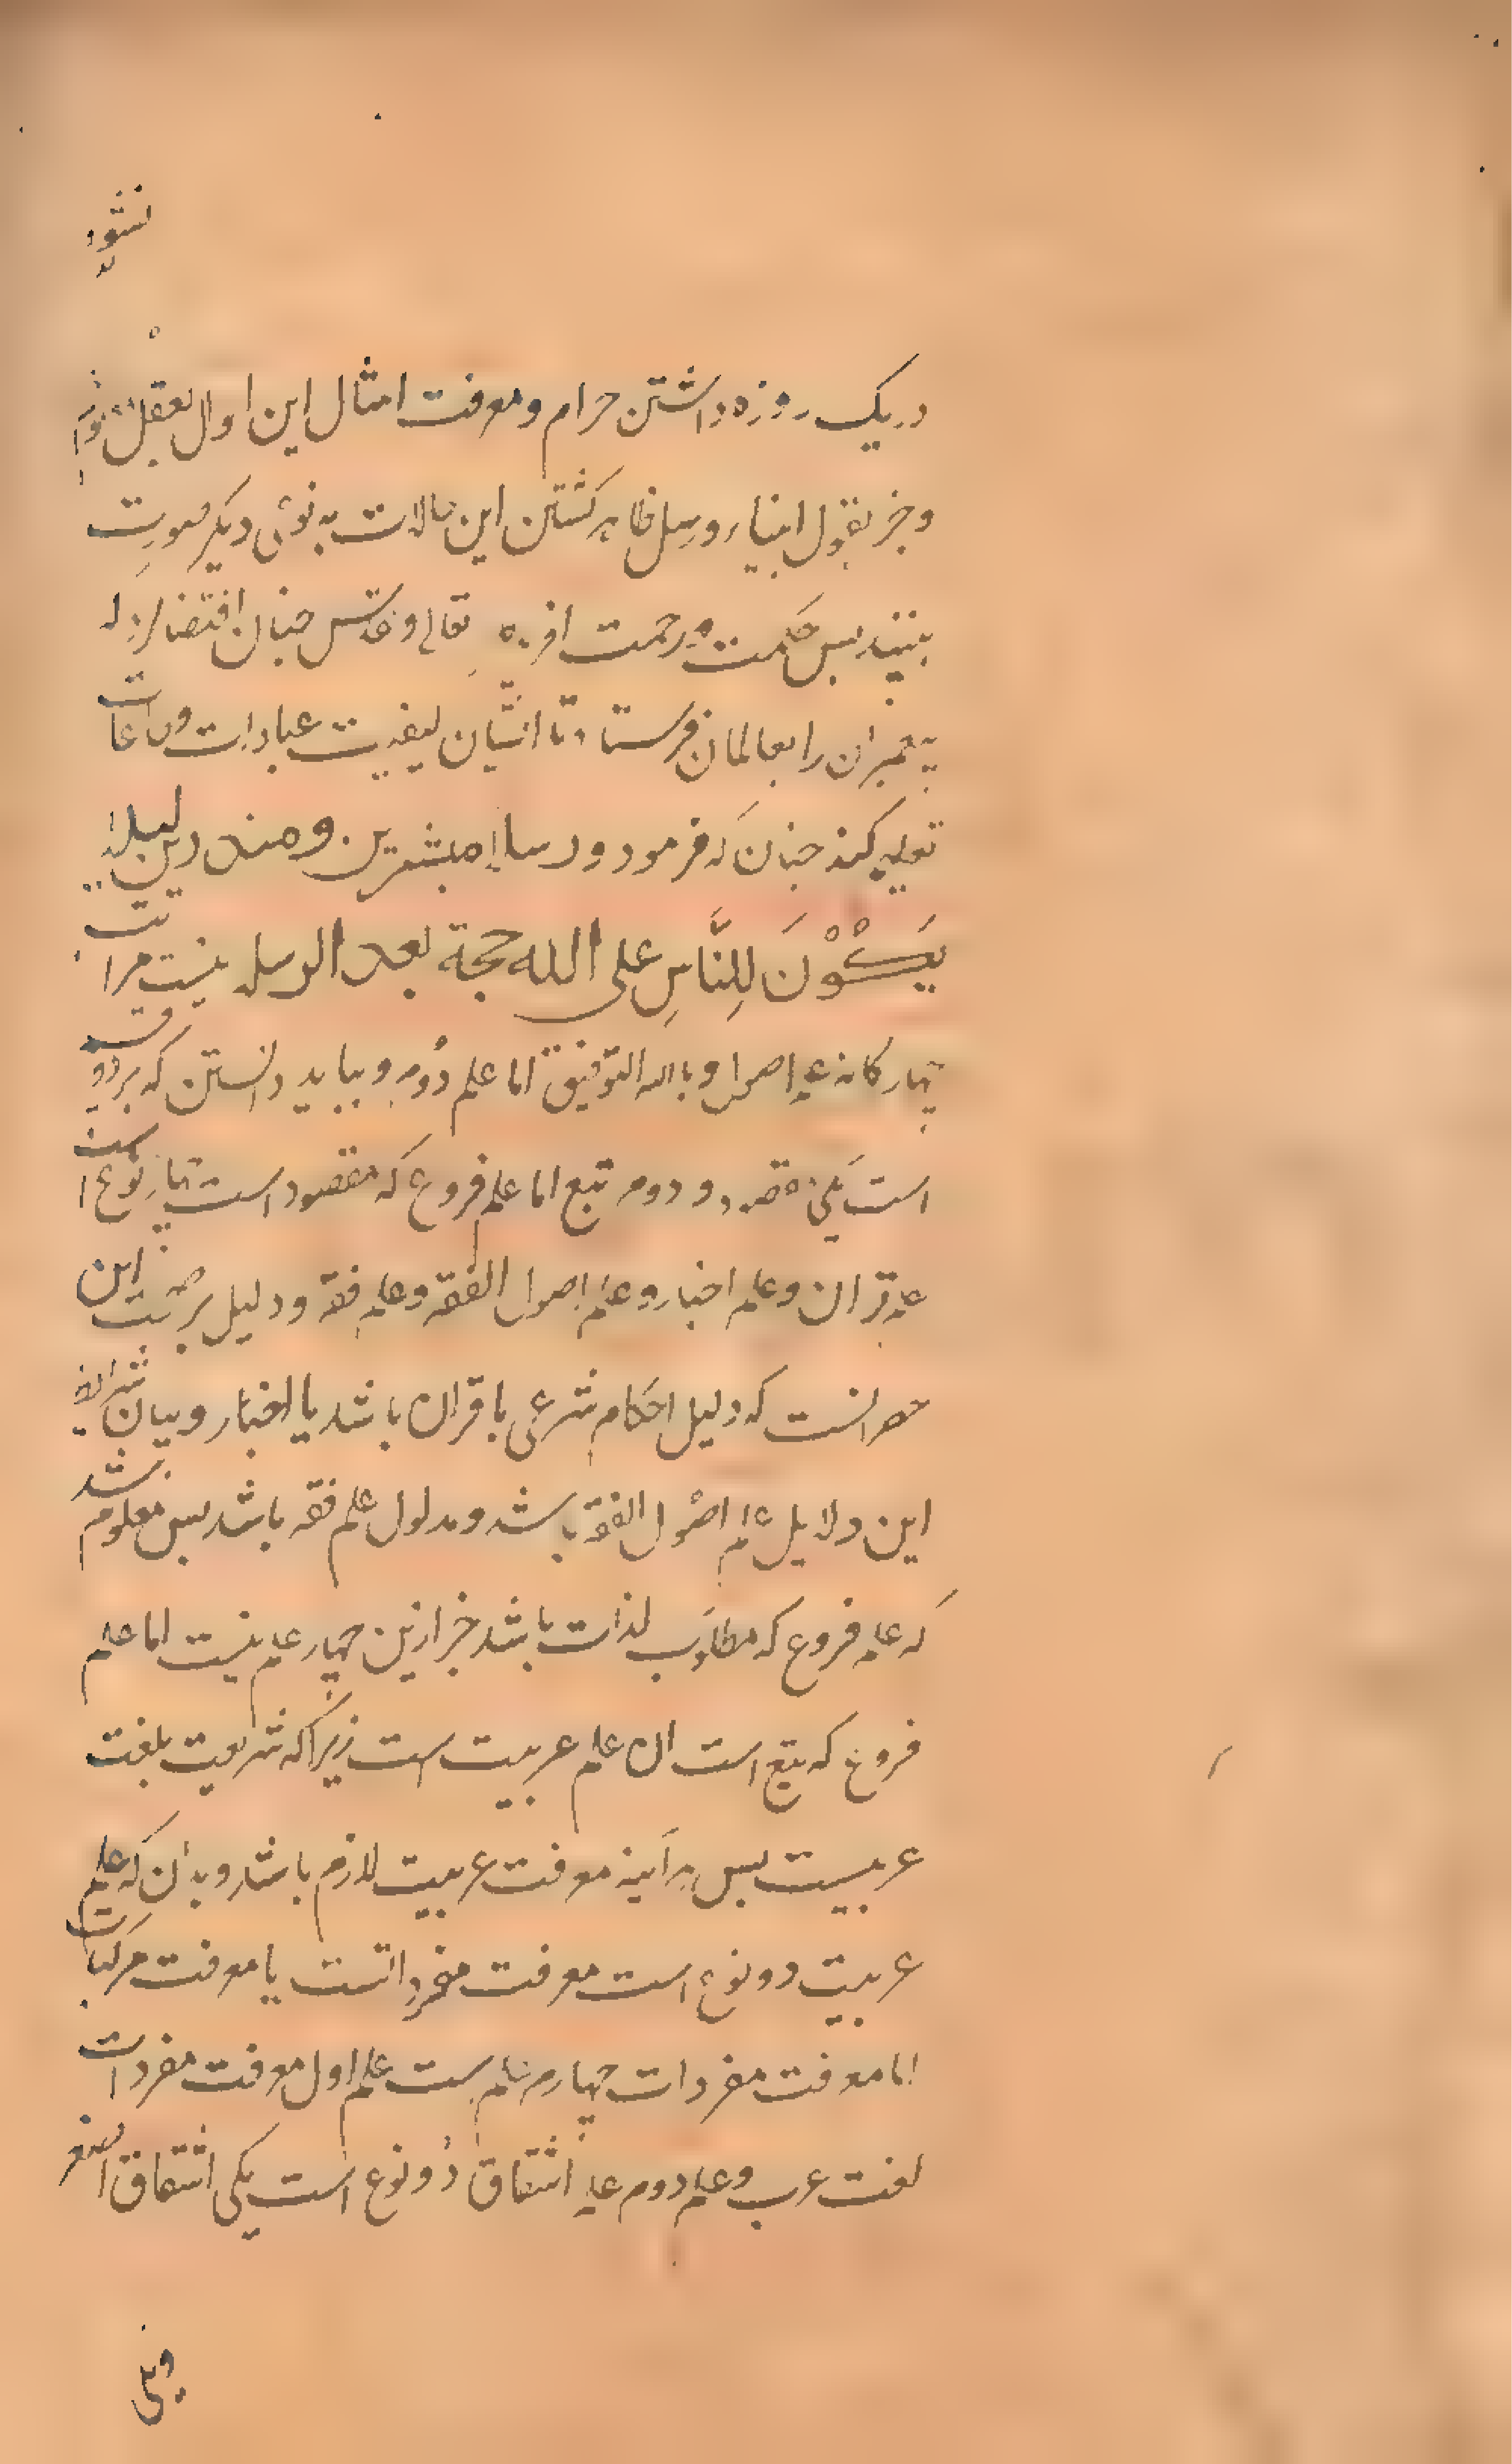 نشود
در یک روزه داشتن حرام و معرفت امثال این اول بعقل نتوا
و جز بقول انبیاء و رسل ظاهر کشتن این حالات به نوعی دیکر صورت
بنبندد بس حکمت و رحمت تعالی و تقدس جنان اقتضا کرد که
بیغمبران را بعالمان فرستاد تا ایشان کیفیت عبادات و طاعات
تعلیم کنند جنان که فرمود و رسلا مبشرین و منذرین لیلا
یَکُوْنَ لِلنَّاسِ علی الله حجة بعد الرسل نیست مراتب
جهار کانه علم اصول و بالله التوفیق اما علم دوم و بباید دانستن که بر دو قسم
است یکی مقصود و دوم تبع اما علم فروع که مقصود است جهار نوع است
علم قران و علم اخبار و علم اصول الفقه و علم فقه و دلیل بر صحت این
حصر انست که دلیل احکام شرعی یا قران باشد یا اخبار و بیان شرایط
این دلایل علم اصول الفقه باشد و مدلول علم فقه باشد بس معلوم شد
که علم فروع که مطلوب لذات باشد جز ازین جهار علم نیست اما علم
فروع که تبع است ان علم عربیت است زیرا که شریعت بلغت
عربیست بس هر اینه معرفت عربیت لازم باشد و بدان که علم
عربیت دو نوع است معرفت مفرداتست یا معرفت مرکبات
اما معرفت مفردات جهارم علم است علم اول معرفت مفردات
لغت عرب و علم دوم علم اشتقاق دو نوع است یکی اشتقاق اصغر